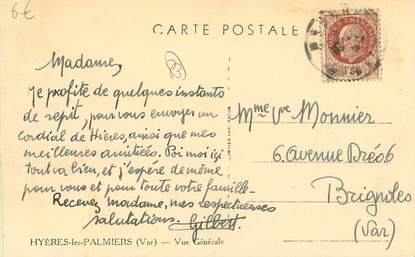 6€
CARTE POSTALE
Madame,
Je profite de quelques instants
de repit, pour vous envoyer un
cordial de Hières, ainsi que mes
meilleures amitiées. Poi moi ici
Tout va bien, et j'espère de même
pour vous et pour toute votre famille-
Recevez madame, mes respectueuses
salutations. Gilbert.
Mme Vve Monnier
6. Avenue Dréo 6
Brignoles
(Var)
HYÈRES-les-PALMIERS (Var) — Vue Générale